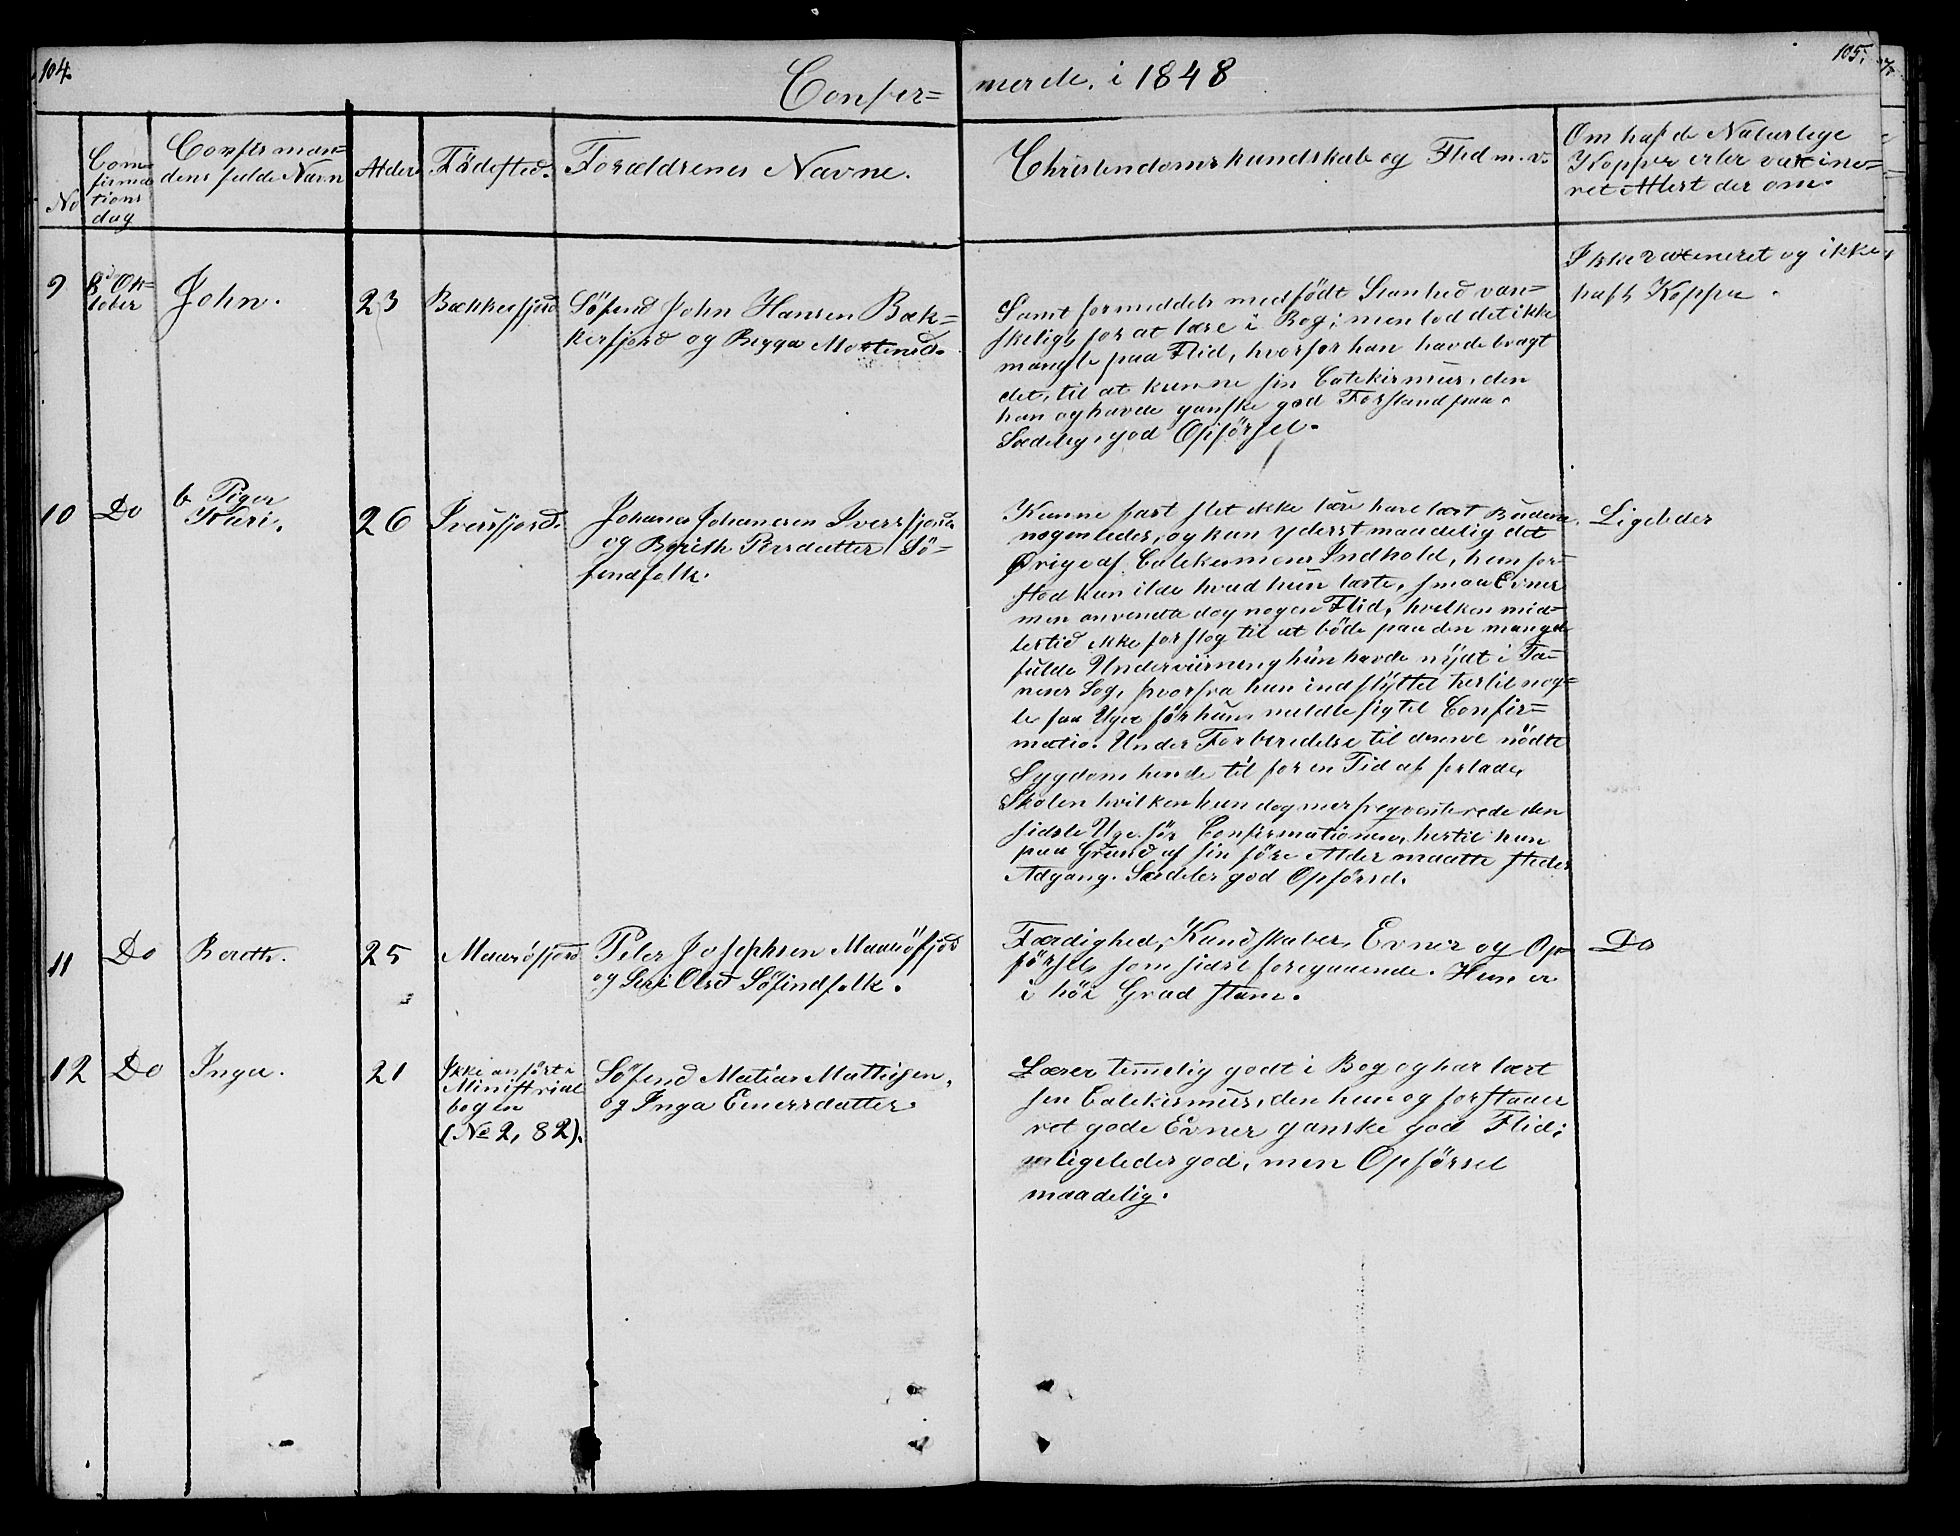 104.
105.
Confir=
merde. i 1848
No
Con=
firma
tions
dag
Confirman=
dens fulde Navn
Alder
Födested.
Foræddrenes Navne.
Christendomskundskab og Flid m. v.
Om haft de Naturlige
Kopper eller vaxine=
ret Attest der om.
9
8de Ok=
tober
John.
23
Bækkerfjord
Söfind John Hansen Bæk=
kerfjord og Bigga Mortensd.
Samt formeddels medfödt Stanhed van=
skeligt for at lære i Bog; men lod det ikke
mangle paa Flid, hvorfor han havde bragt
det, til at kunne sin Catekismus, den
han og havde ganske god Forstand paa.
Sædelig, god Opförsel.
Ikke vaxeneret og ikke
haft Kopper.
10
Do
b Piger
26
Iversfjord.
Johanes Johanesen Iversfjord
og Berith Persdatter Sö=
findfolk.
Kunne fast slet ikke lære have lært Budene
nogenledes, og kun yderst maadelig det
Örige af Catekismens Indhold, hun for=
stod kun ilde hvad hun lærte, smaa Evner
men anvendte dog nogen Flid, hvilken mid=
lertid ikke forslog til at böde paa den mangel
fulde Underviisning hun havde nÿdt i Ta=
nens Sog, hvorfra hun indflÿttet hertil nog=
le faa Uger för hun meldte sig til Confir=
matio. Under Forberedelse til denne nödte
Sygdom hende til for en Tid at forlade
Skolen hvilken hun dog mer freqventerede den
sidste Uge för Confirmationen, hertil hun
paa Grund af sin före Alder maatte stedes
Adgang. Særdeles god Opförsel.
Ligeledes
11
Do
Bereth.
25
Maaröfjord
Peter Josephsen Maaröfjord
og Siri Olsd Söfindfolk.
Færdighed, Kundskaber, Evner og Op=
försel, som sidst foregaaende. Hun er
i höi Grad stam.
Do
12
Do
Inga.
21
Ikke anfört i
Ministrial
bogen
(No 2, 82).
Söfind Matias Mathisen,
og Inga Einersdatter
Lærer temelig godt i Bog og har lært
sin Catekismus, den hun og forstaaer
ret gode Evner ganske god Flid;
ligeledes god, men Opförsel
maadelig.